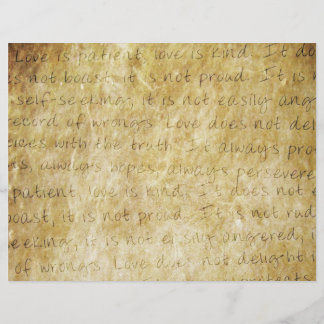 Love is patient, love is kind. It do
es not boast, it is not proud. It is n
self-seeking, it is not easily ang
record of wrongs. Love does not del
oices with the truth. It always pro
ts, always hopes, always persevere
patient, love is kind. It does not e
oast, it is not proud. It is not rud
eeking, it is not easily angered, i
of wrongs. Love does not delight i